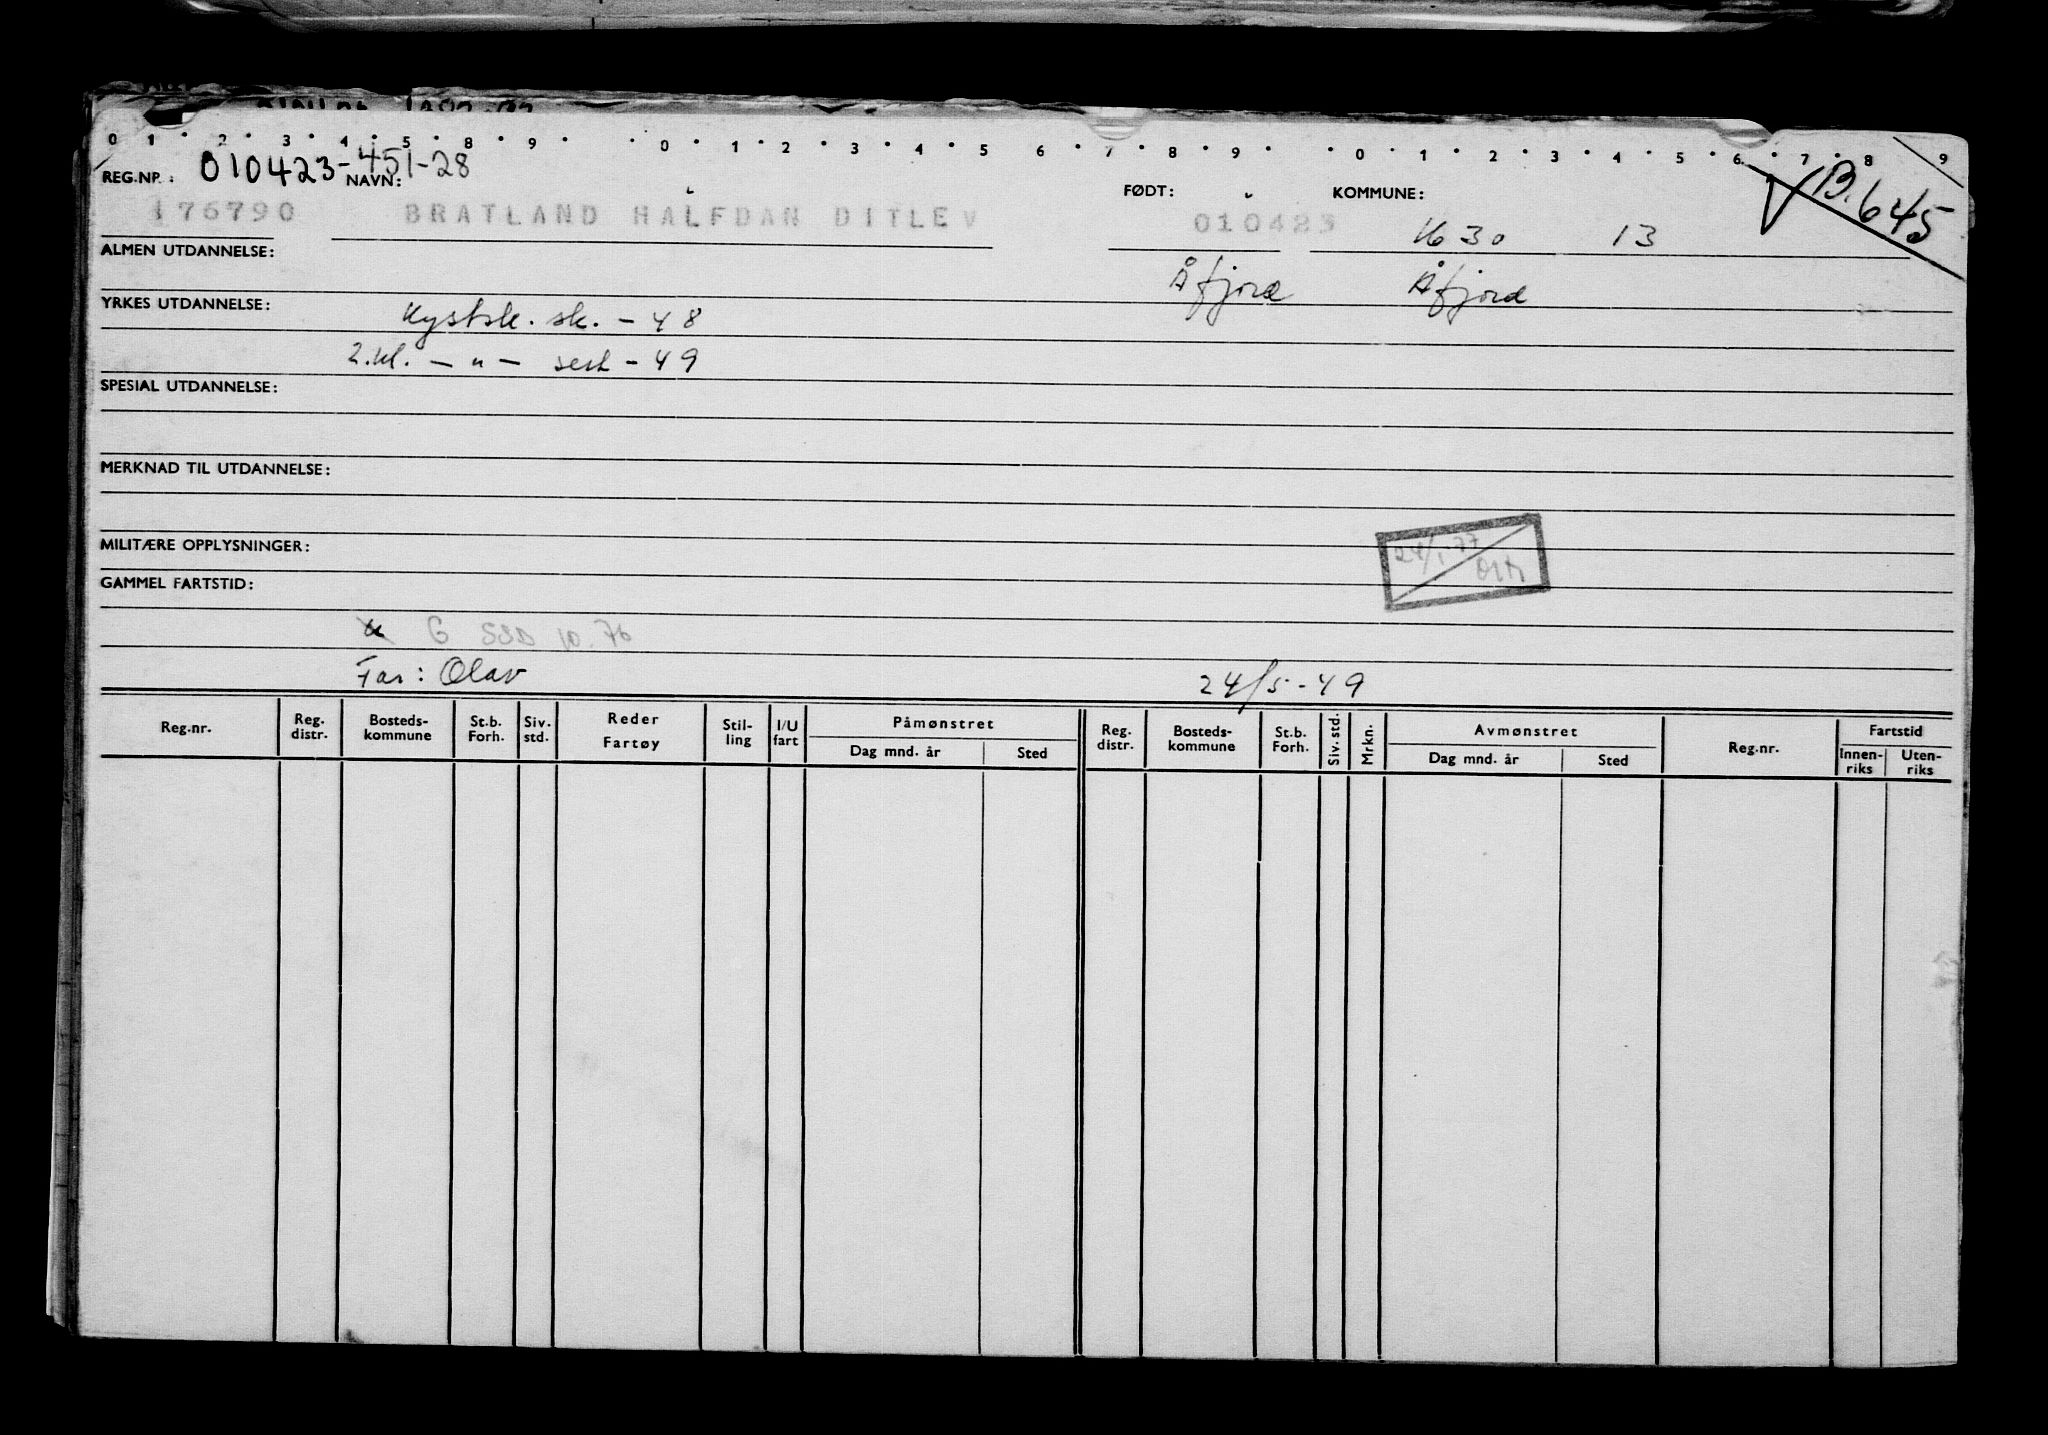 0 1 2 3 4 5 8 9 0 1 2 3 4 5 6 7 8 9 0 1 2 3 4 5 6 7 8 9
REG.NR.: 010423-451-28 NAVN: FØDT: KOMMUNE: B.645
176790 BRATLAND HALFDAN DITLEV 010423 1630 13
ALMEN UTDANNELSE: Åfjord Åfjord
YRKES UTDANNELSE: Kystsk. sk. - 48
2.kl. - " - sert - 49
SPESIAL UTDANNELSE:
MERKNAD TIL UTDANNELSE:
MILITÆRE OPPLYSNINGER: 24/1 77
GAMMEL FARTSTID:
G SSD 10.76
Far: Olav 24/5-49
Reg.nr. Reg. distr. Bosteds-kommune St.b. Forh. Siv. std. Reder Fartøy Stil-ling I/U fart Påmønstret Dag mnd. år Sted Reg. distr. Bosteds-kommune St.b. Forh. Siv. std. Mrkn. Avmønstret Dag mnd. år Sted Reg.nr. Fartstid Innen-riks Uten-riks